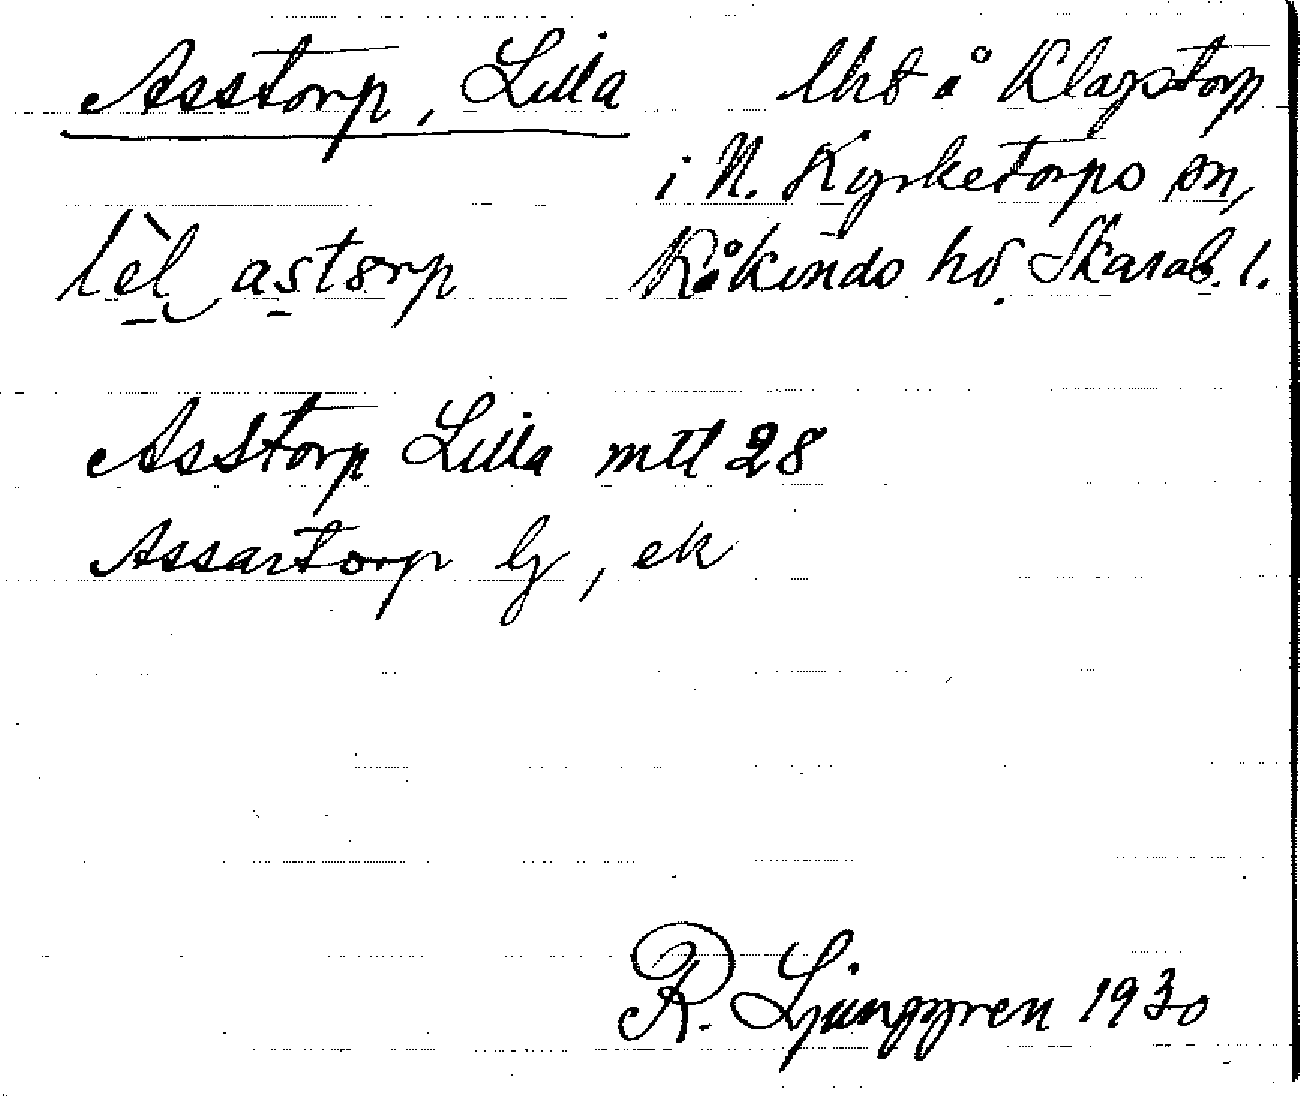 Asstorp, Lilla
lht å Klagstorp
i N. Kyrketorps sn,
Kåkinds hd. Skarab. l.
lèl astorp
Asstorp Lilla mtl 28
Assartorp lj, ek
R. Ljunggren 1930